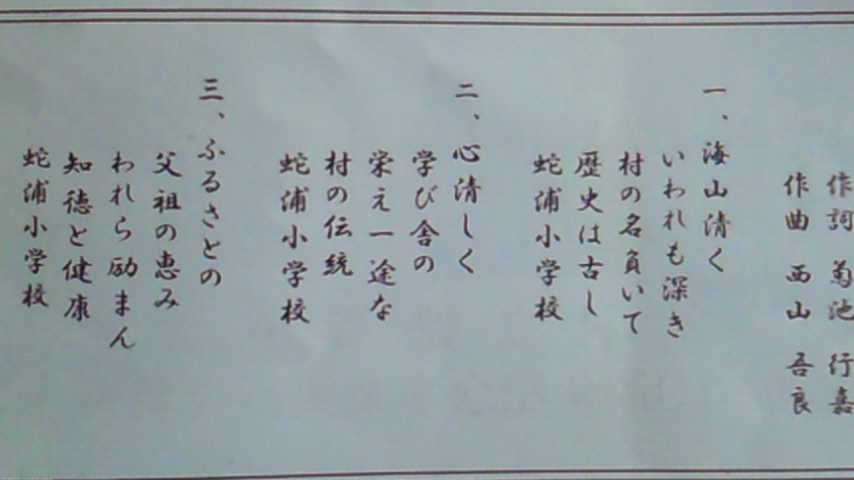 作詞 菊池 行嘉
作曲 西山 吾良
一、海山清く
いわれも深き
村の名負いて
歴史は古し
蛇浦小学校
二、心清しく
学び舎の
栄え一途な
村の伝統
蛇浦小学校
三、ふるさとの
父祖の恵み
われら励まん
知徳と健康
蛇浦小学校